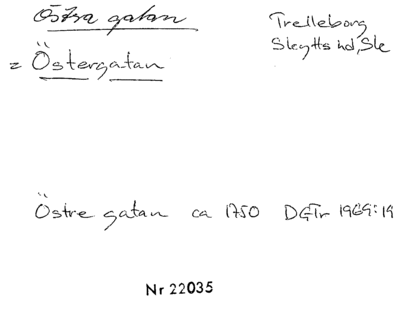 Östra gatan
Trelleborg
Skytts hd, Ske
= Östergatan
Östre gatan ca 1750 DGTr 1969:19
Nr 22035